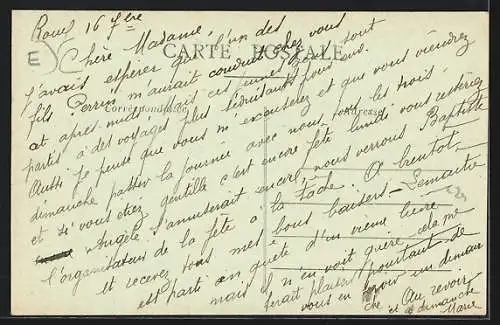 Rouf 16 7bre
Chère Madame,
CARTE POSTALE
J'avais espérer qu'l'un des
fils Perrin m'aurait conduit chez vous
cet après-midi mais ces sont tout
partis à des voyages plus séduisants pour eux.
Correspondance
Adresse
Aussi je pense que vous m'excuserez et que vous viendrez
dimanche passer la journée avec nous tous les trois,
et si vous étiez gentille c'est encore fête lundi vous resteriez
Angèle s'amuserait encore, nous verrons Baptiste
l'organisateur de la fête à la A bientôt
et recevez tous mes bons baisers - Lemaître
est parti en quête d'un vieux lièvre
mais n'en voit guère, cela me
ferait plaisir pourtant de
vous en faire un demain
Au revoir
à dimanche
Marie
E